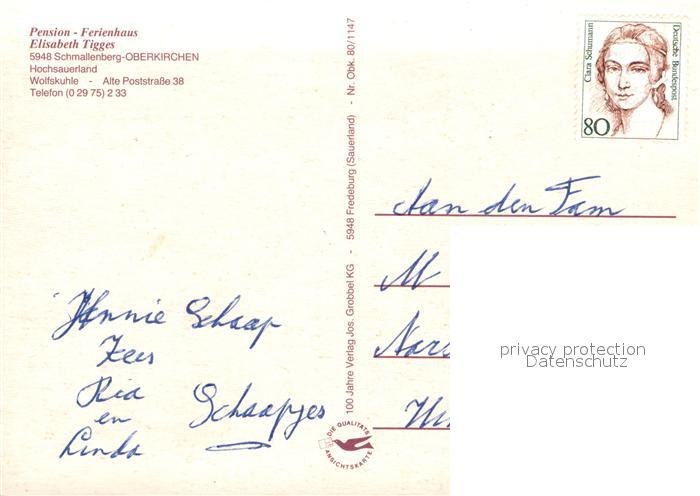 Pension - Ferienhaus
Elisabeth Tigges
5948 Schmallenberg-OBERKIRCHEN
Hochsauerland
Wolfskuhle - Alte Poststraße 38
Telefon (0 29 75) 2 33
100 Jahre Verlag Jos. Grobbel KG - 5948 Fredeburg (Sauerland) - Nr. Obk. 80/1147
DIE QUALITÄTS
ANSICHTSKARTE
Clara Schumann
Deutsche Bundespost
80
Aan den Fam
M
privacy protection
Datenschutz
Hennie Schaap
Kees
Ria Schaapjes
en
Linda